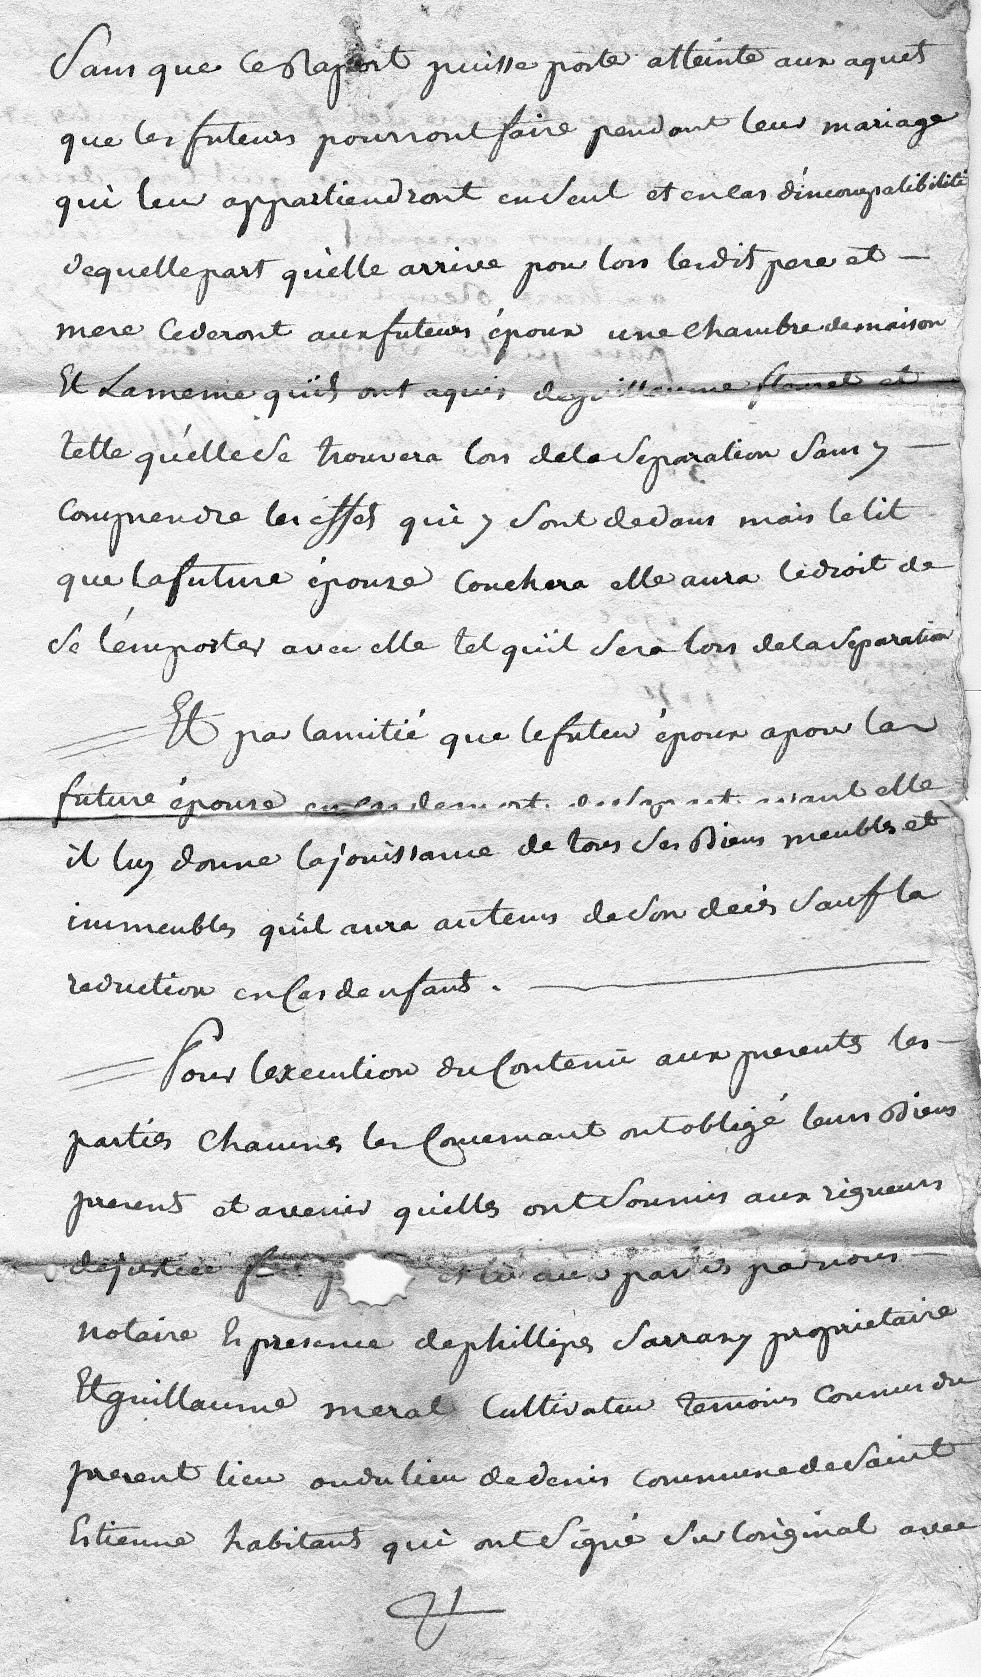 Sans que ce Raport puisse porte atteinte aux aquets
que les futeurs pourront faire pendant leur mariage
qui leur appartiendront en seul et en cas d'incompatibilité
de quelle part qu'elle arrive pour lors lesdit pere et —
mere cederont aux futeurs époux une chambre de maison
Et Lameme quils ont aquis deguillaume et —
telle qu'elle se trouvera lors dela separation sans y —
Comprendre les effets qui y sont dedans mais le lit
que la future épouse Couchera elle aura le droit de
se l'emporter avec elle tel quil sera lors dela separation
Et par lamitié que le futeur époux a pour la
future épouse en cas demort avant elle
il luy donne la jouissance de tous ses Biens meubles et
immeubles quil aura au tems de son decès sauf la
reduction en Cas denfans. —
Pour lexecution du Contenu aux presents les —
parties chacunes les Concernant ont obligé leurs Biens
presens et avenir quelles ont soumis aux rigueurs
dejustice et lu aux parties par nous —
notaire En presence de phillipes Sarrazy proprietaire
Et guillaume meral Cultivateur temoins connus du
present lieu ou du lieu de denis commune de Saint
Estienne habitans qui ont signé sur loriginal avec